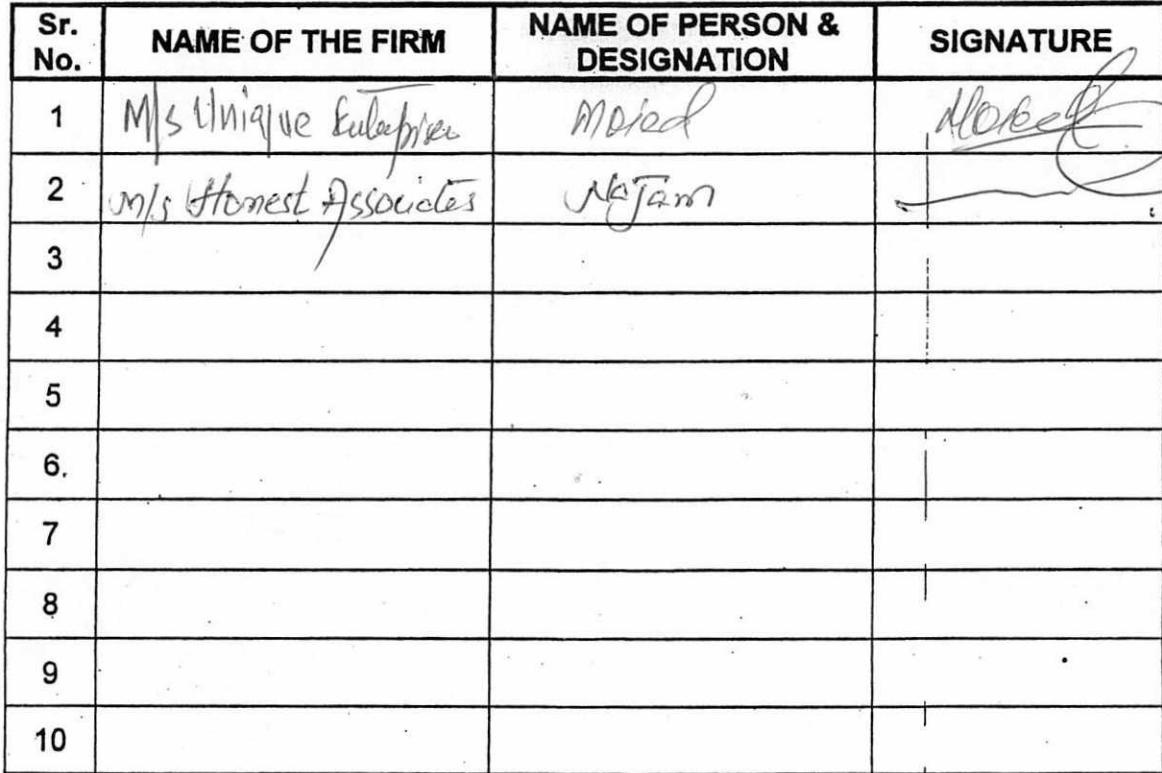 Sr. No. NAME OF THE FIRM NAME OF PERSON & DESIGNATION SIGNATURE
1 M/s Unique Enterprises Moied
2 M/s Honest Associates Najam
3
4
5
6.
7
8
9
10